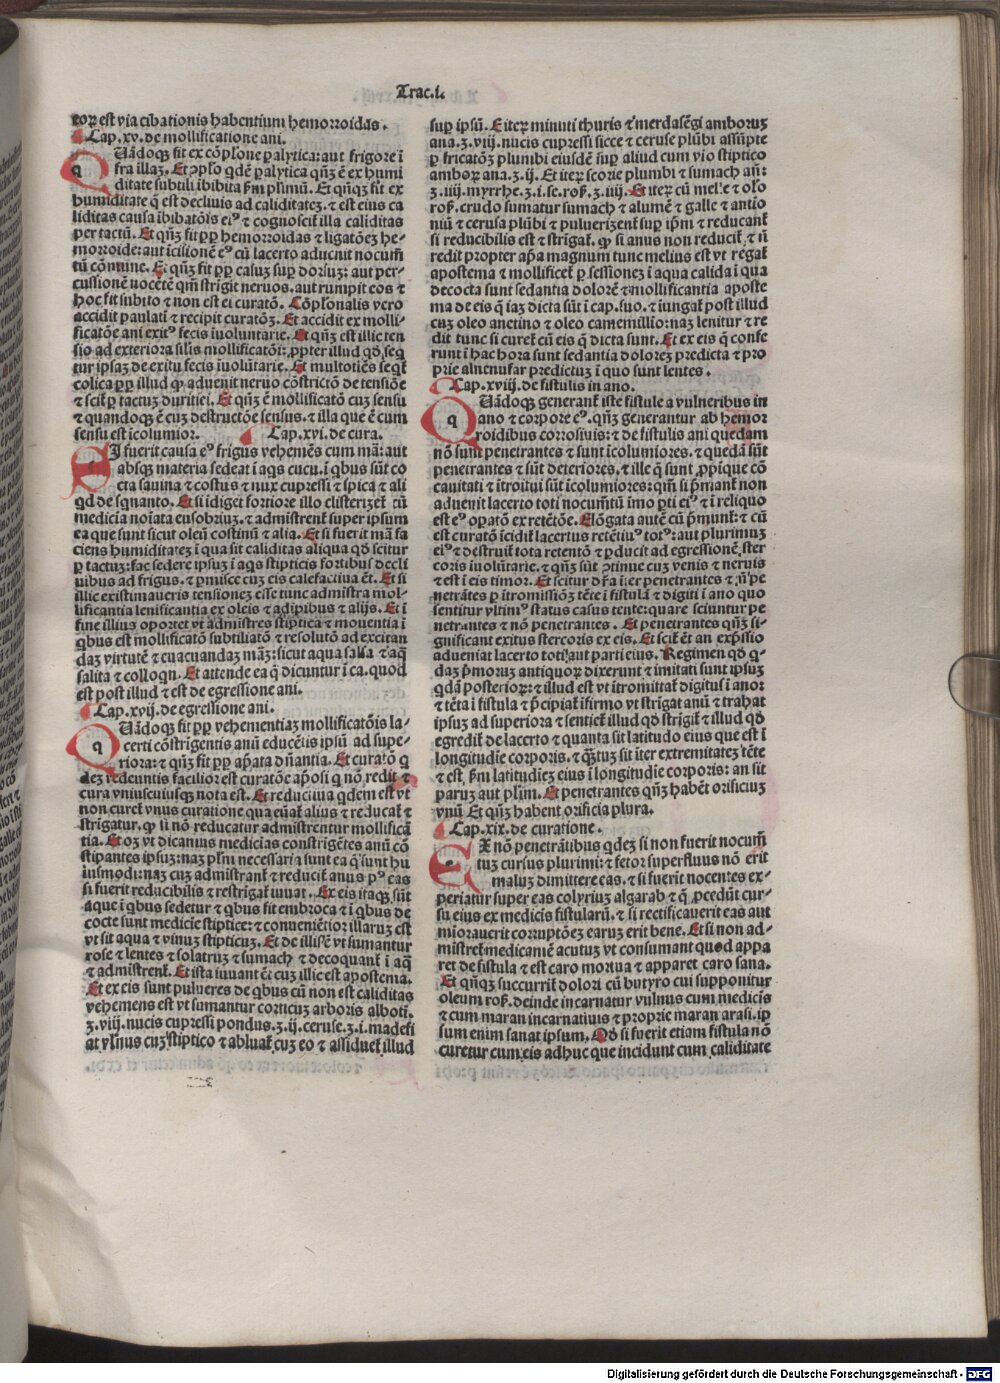 Trac.i.
eorꝝ est via cibationis habentium hemorroidas.
Cap.xv. de mollificatione ani.
QUãdoqꝫ fit ex cõplõne palytica: aut frigore ĩ
fra illaꝫ. Et ꝯplo qdẽ palytica qñꝫ ẽ ex humi
ditate subtili ibibita ẜm plimũ. Et qñqꝫ fit ex
humiditate q̃ est decliuis ad caliditateꝫ. ⁊ est eius ca
liditas causa ibibatõis eiꝰ ⁊ cognoscit̃ illa caliditas
per tactũ. Et qñꝫ fit ꝓp hemorroidas ⁊ ligatõeꝫ he⸗
morroide: aut icilionẽ eꝰ cũ lacerto aduenit nocum̃
tũ cõmune. Et qñꝫ fit ꝓp casuꝫ suꝑ dorsuꝫ: aut per⸗
cussionẽ uocẽtẽ qm̃ strigit neruos. aut rumpit eos ⁊
hoc fit subito ⁊ non est ei curatõ. Cõplonalis vero
accidit paulati ⁊ recipit curatõꝫ. Et accidit ex molli⸗
ficatõe ani exitꝰ fecis iuoluntarie. Et qñꝫ est illic ten
sio ad exteriora silis mollificatõi: ꝓpter illud qd̃ seq̃
tur ipsaꝫ de exitu fecis iuolũtarie. Et multotiẽs seqt̃
colica ꝓp illud ꝙ aduenit neruo cõstrictõ de tensiõe
⁊ scit̃ ꝑ tactuꝫ duritiei. Et qñꝫ ẽ mollificatõ cuꝫ sensu
⁊ quandoqꝫ ẽ cuꝫ destructõe sensus. ⁊ illa que ẽ cum
sensu est icolumior. Cap.xvi. de cura.
SI fuerit causa eꝰ frigus vehemẽs cum mã: aut
absqꝫ materia sedeat i aqs cucu. i qbus sũt co
cta sauina ⁊ costus ⁊ nux cupressi ⁊ spica ⁊ ali
qd de sqnanto. Et si idiget fortiore illo clisterizet̃ cũ
medicia noiata eusobriuꝫ. ⁊ admistrent̃ super ipsum
ea que sunt sicut oleũ costinũ ⁊ alia. Et si fuerit mã fa
ciens humiditateꝫ i qua sit caliditas aliqua qd̃ scitur
ꝑ tactuꝫ: fac sedere ipsuꝫ i aqs stipticis fortibus decli
uibus ad frigus. ⁊ ꝑmisce cuꝫ eis calefactiua ẽt. Et si
illic existimaueris tensionez esse tunc admistra mol⸗
lificantia lenificantia ex oleis ⁊ adipibus ⁊ alijs. Et i
fine illius oportet vt admistres stiptica ⁊ mouentia i
qbus est mollificatõ subtiliatõ ⁊ resolutõ ad excitan
daꝫ virtutẽ ⁊ euacuandaꝫ mãꝫ: sicut aqua salsa ⁊ aq̃
salita ⁊ colloqn. Et attende ea q̃ dicuntur i ca. quod
est post illud ⁊ est de egressione ani.
Cap.xvij. de egressione ani.
QUãdoqꝫ fit ꝓp vehementiaꝫ mollificatõis la⸗
certi cõstrigentis anũ educẽtis ipsũ ad supe⸗
riora: ⁊ qñꝫ fit ꝓp apata dñantia. Et curatõ q
deꝫ redeuntis facilior est curatõe aposi q nõ redit ⁊
cura vniuscuiusqꝫ nota est. Et reductiua qdem est vt
non curet vnus curatione qua euat̃ alius ⁊ reducat̃ ⁊
strigatur. ꝙ si nõ reducatur admistrentur mollificã
tia. Et oꝫ vt dicamus medicias constrigẽtes anũ cõ
stipantes ipsuꝫ: naꝫ plm̃ necessaria sunt ea q̃ sunt hu
iusmodi: naꝫ cuꝫ admistrant̃ ⁊ reducit̃ anus pꝰ eas
si fuerit reducibilis ⁊ restrigat̃ iuuat. Ex eis itaqꝫ sũt
aque i qbus sedetur ⁊ qbus fit embroca ⁊ i qbus de
cocte sunt medicie stiptice: ⁊ conueniẽtior illaruꝫ est
vt sit aqua ⁊ vinuꝫ stipticuꝫ. Et de illis ẽ vt sumantur
rose ⁊ lentes ⁊ solatruꝫ ⁊ sumach ⁊ decoquant̃ i aq̃
⁊ admistrent̃. Et ista iuuant ẽt cuꝫ illic est apostema.
Et ex eis sunt pulueres de qbus cũ non est caliditas
vehemens est vt sumantur corticuꝫ arboris alboti.
ʒ.viij. nucis cupressi pondus.ʒ.ij. ceruse.ʒ.i. madefi
at ylnus cuꝫ stiptico ⁊ abluat̃ cuꝫ eo ⁊ assiduet̃ illud
suꝑ ipsũ. Et iteꝝ minuti thuris ⁊ merdasẽgi amboruꝫ
ana.ʒ.viij. nucis cupressi sicce ⁊ ceruse plũbi assũpte
ꝑ fricatõꝫ plumbi eiusdẽ suꝑ aliud cum vio stiptico
amboꝝ ana.ʒ.ij. Et iteꝝ scorie plumbi ⁊ sumach añ:
ʒ.iiij. myrrhe.ʒ.i.se.roẜ.ʒ.iij. Et iteꝝ cũ melle ⁊ olo
roẜ. crudo sumatur sumach ⁊ alumẽ ⁊ galle ⁊ antio
niũ ⁊ cerusa plũbi ⁊ puluerizent̃ suꝑ ipm̃ ⁊ reducant̃
si reducibilis est ⁊ strigat̃. ꝙ si anus non reducit̃ ⁊ ñ
redit propter apa magnum tunc melius est vt regat̃
apostema ⁊ mollificet̃ ꝑ sessioneꝫ i aqua calida i qua
decocta sunt sedantia dolorẽ ⁊ mollificantia aposte
ma de eis q̃ iaꝫ dicta sũt i cap. suo. ⁊ iungat̃ post illud
cuꝫ oleo anetino ⁊ oleo camemillino: naꝫ lenitur ⁊ re
dit tunc si curet̃ cũ eis q̃ dicta sunt. Et ex eis q̃ confe
runt i hac hora sunt sedantia doloreꝫ predicta ⁊ pro
prie alneusar predictuꝫ i quo sunt lentes.
Cap.xviij. de fistulis in ano.
QUãdoqꝫ generant̃ iste fistule a vulneribus in
ano ⁊ corpore eꝰ. qñꝫ generantur ab hemor
roidibus corrosiuis: ⁊ de fistulis ani quedam
nõ sunt penetrantes ⁊ sunt icolumiores. ⁊ quedã sũt
penetrantes ⁊ sũt deteriores. ⁊ ille q̃ sunt ꝓpique cõ
cauitati ⁊ itroitui sũt icolumiores: qm̃ si ꝑmant̃ non
aduenit lacerto toti nocum̃tũ imo ꝑti eiꝰ ⁊ i reliquo
est eꝰ opatõ ex retẽtõe. Elõgata autẽ cũ ꝑmunt̃: ⁊ cũ
est curatõ icidit̃ lacertus retẽtiuꝰ totꝰ: aut plurimuꝫ
eiꝰ ⁊ destruit̃ tota retentõ ⁊ ꝑducit ad egressionẽ ster
coris iuolũtarie. ⁊ qñꝫ sũt ꝯtinue cuꝫ venis ⁊ neruis
⁊ est i eis timor. Et scitur dr̃a iter penetrantes ⁊ ñ pe
netrãtes ꝑ itromissiõꝫ tẽte i fistulã ⁊ digiti i ano quo
sentitur vltimꝰ status casus tente: quare sciuntur pe
netrantes ⁊ nõ penetrantes. Et penetrantes qñꝫ si⸗
gnificant exitus stercoris ex eis. Et scit̃ ẽt an expssio
adueniat lacerto toti: aut parti eius. Regimen qd̃ q̃⸗
daꝫ pmoruꝫ antiquoꝝ dixerunt ⁊ imitati sunt ipsuꝫ
qdã posterioꝝ: ⁊ illud est vt itromittat̃ digitus i anoꝫ
⁊ tẽta i fistula ⁊ ꝑcipiat̃ ifirmo vt strigat anũ ⁊ trahat
ipsuꝫ ad superiora ⁊ sentiet̃ illud qd̃ strigit̃ ⁊ illud qd̃
egredit̃ de lacerto ⁊ quanta sit latitudo eius que est i
longitudie corporis. ⁊ q̃tuꝫ sit iter extremitateꝫ tẽte
⁊ est ẜm latitudieꝫ eius i longitudie corporis: an sit
paruꝫ aut plim̃. Et penetrantes qñꝫ habẽt orificiuꝫ
vnũ Et qñꝫ habent orificia plura.
Cap.xix. de curatione.
EX nõ penetrãtibus qdeꝫ si non fuerit nocum̃
tuꝫ cursus plurimi: ⁊ fetor superfluus nõ erit
maluꝫ dimittere eas. ⁊ si fuerit nocentes ex⸗
periatur super eas colyrius algarab ⁊ q̃ ꝓcedũt cur⸗
su eius ex medicis fistularũ. ⁊ si rectificauerit eas aut
minorauerit corruptõeꝫ earuꝫ erit bene. Et si non ad⸗
mistret̃ medicamẽ acutuꝫ vt consumant quod appa
ret de fistula ⁊ est caro mortua ⁊ apparet caro sana.
Et qñqꝫ succurrit̃ dolori cũ butyro cui supponitur
oleum roẜ. deinde incarnatur vulnus cum medicis
⁊ cum maran incarnatiuis ⁊ proprie maran arasi. ip
sum enim sanat ipsum. Qd̃ si fuerit etiam fistula nõ
curetur cum eis adhuc que incidunt cum caliditate
Digitalisierung gefördert durch die Deutsche Forschungsgemeinschaft - DFG